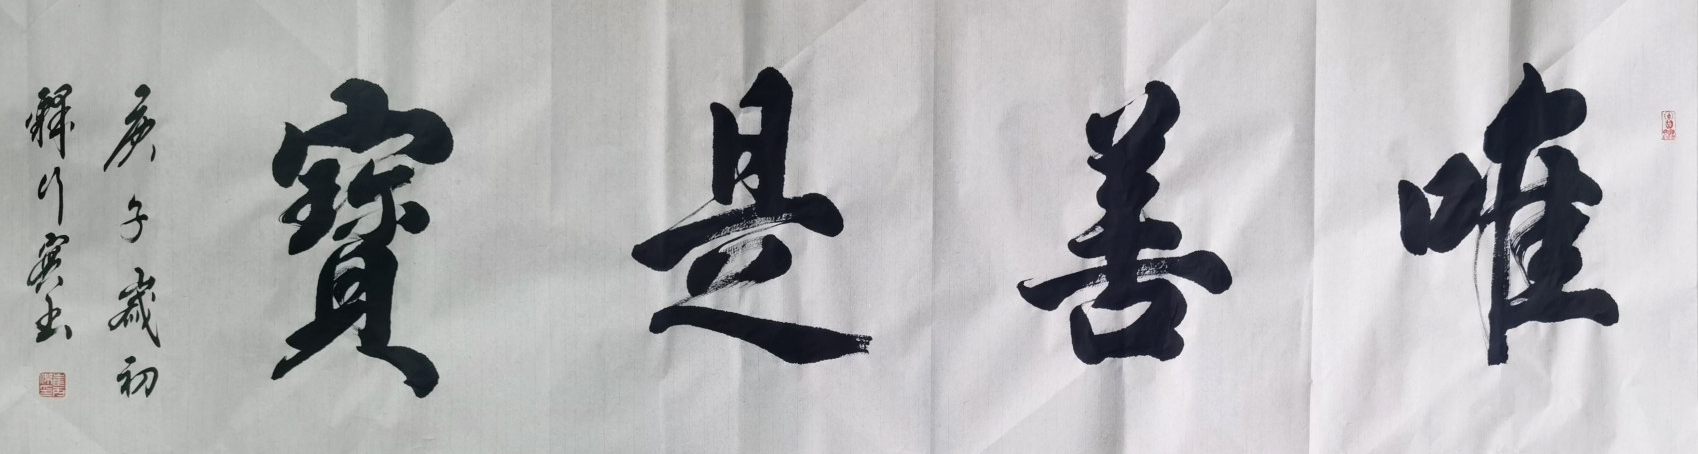 唯善是寶
庚子歲初
釋行實書